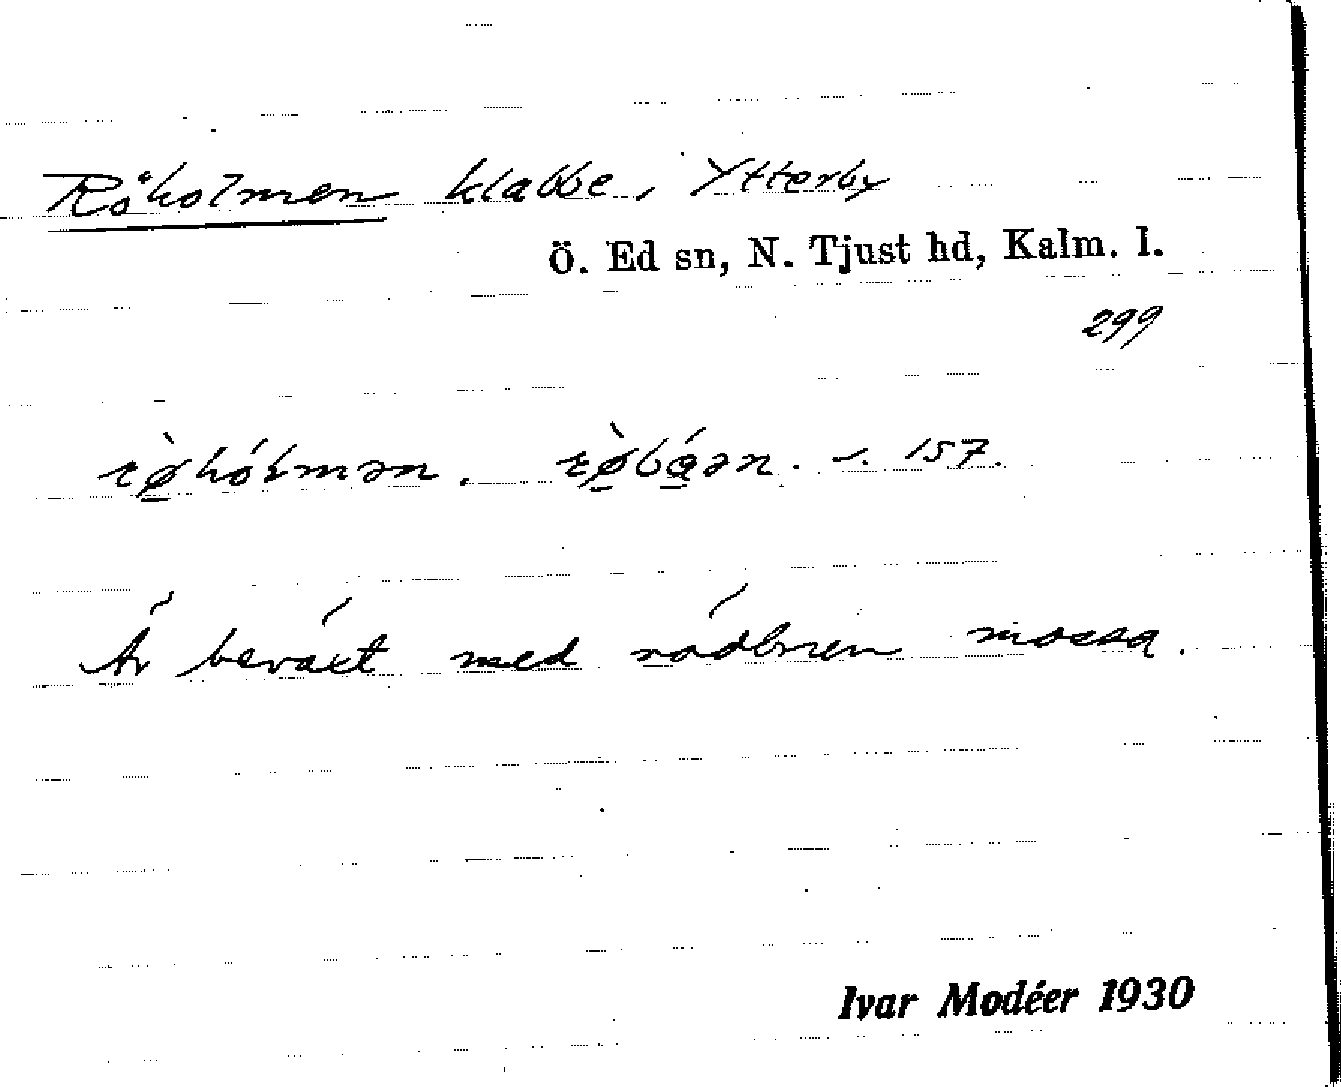 Röholmen klabbe, Ytterby
Ö. Ed sn, N. Tjust hd, Kalm. l.
299
rø̀hólmən. rø̀bó̱ən. s. 157.
Är beväxt med rödbrun mossa.
Ivar Modéer 1930